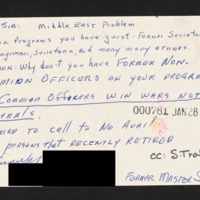 Sir: Middle East Problem
Programs you have just: Former Secretar
Congressmen, Senators, and many many others.
Why don't you have Former Non-
Officers on your program
Common Officers win wars not
erals.
000761 JAN 28
to call to No Avail
persons that recently retired
cc: S.Tra
Former Master S